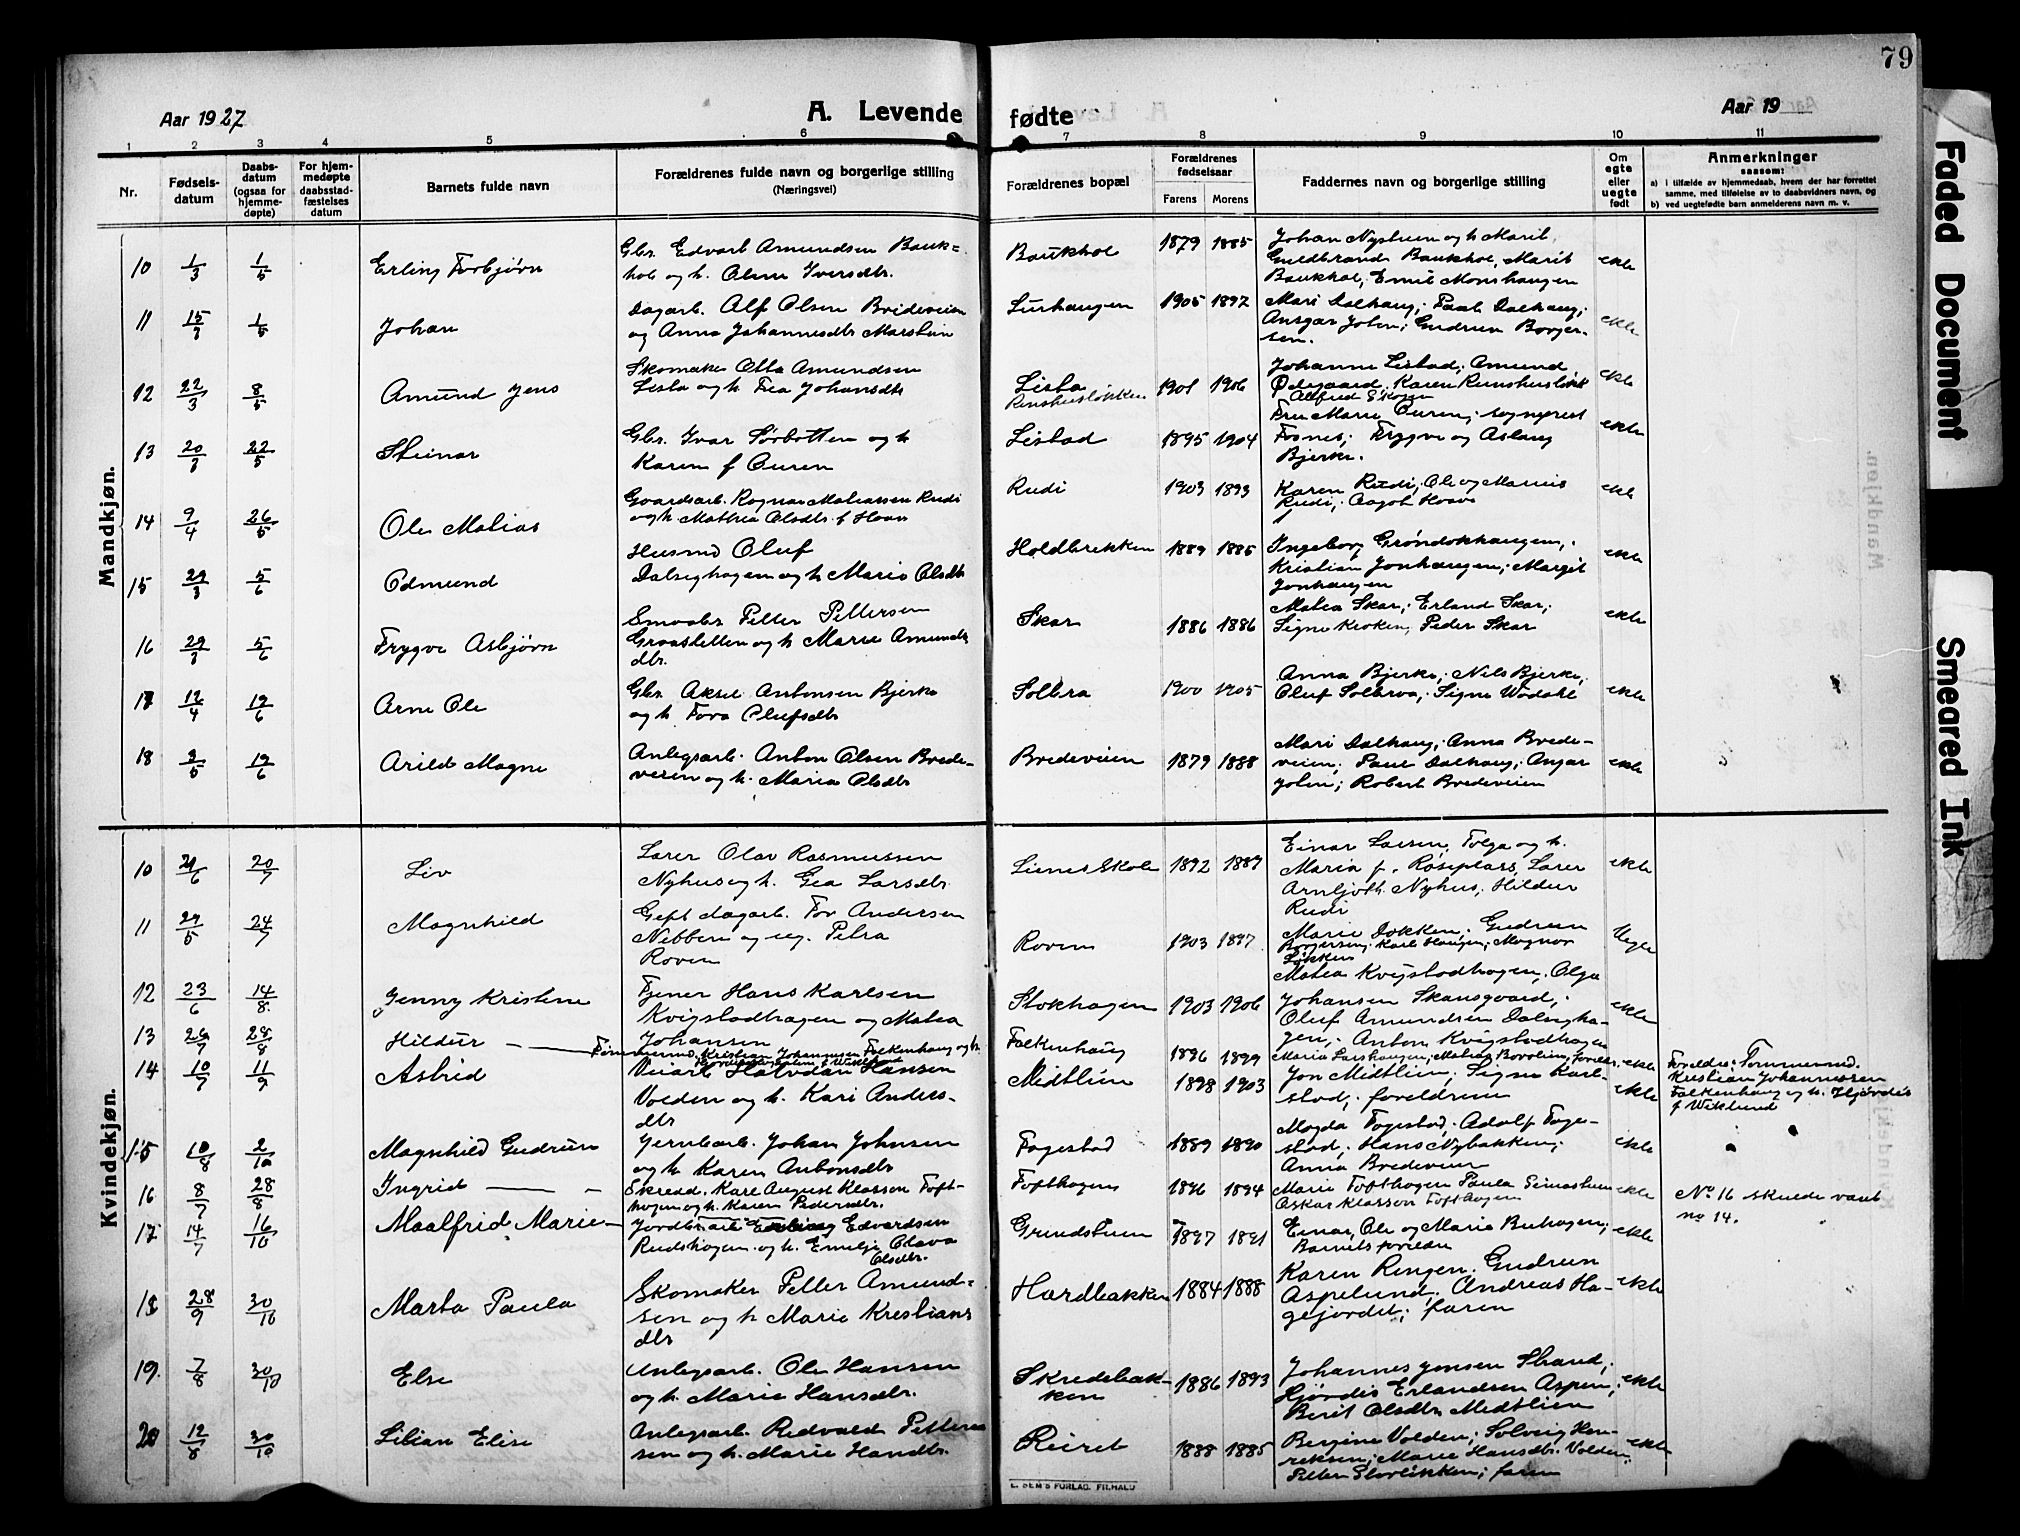 79
Aar 1927
A. Levende fødte
Aar 19
1 2 3 4 5 6 7 8 9 10 11
Nr.
Fødsels-
datum
Daabs-
datum
(ogsaa for
hjemme-
døpte)
For hjem-
medøpte
daabsstad-
fæstelses
datum
Barnets fulde navn
Forældrenes fulde navn og borgerlige stilling
(Næringsvei)
Forældrenes bopæl
Forældrenes
fødselsaar
Farens Morens
Faddernes navn og borgerlige stilling
Om
egte
eller
uegte
født
Anmerkninger
saasom:
a) i tilfælde av hjemmedaab, hvem der har forrettet
samme, med tilføielse av to daabsvidners navn, og
b) ved uegtefødte barn anmelderens navn m. v.
Mandkjøn.
10 1/3 1/5 Erling Torbjørn
Gbr. Edvart Amundsen Bauk=
hol og h. Oline Iversdtr.
Baukhol 1879 1885
Johan Nystuen og h. Marit,
Guldbrand Baukhol, Marit
Baukhol, Emil Monshaugen
ekte
11 15/3 1/5 Johan
Dagarb. Alf Olsen Brideveien
og Anna Johannesdtr Marstein
Lurhaugen 1905 1897
Mari Dalhaug; Paul Dalhaug;
Ansgar Jolin; Gudrun Borger-
sen.
ekte
12 22/3 8/5 Amund Jens
Skomaker Otto Amundsen
Lista og h. Tea Johansdtr
Lista 1901 1906
Johanne Listad; Amund
Ødegaard, Karen
Alfred Skogen
ekte
13 20/3 22/5 Steinar
Gbr. Ivar Sørbotten og h
Karen f Ouren
Listad 1895 1904
Fru Marie Ouren;
Fosnes; Trygve og Aslaug
Bjerke.
ekte
14 9/4 26/5 Ole Matias
Gaardsarb. Ragnar Matiassen Rudi
og h. Mathea Olsdtr. f Haave
Rudi 1903 1893
Karen Rudi; Ole og Marius
Rudi; Aagot Haave
ekte
15 29/3 5/6 Edmund
Husmd Oluf
Dalseghagen og h Marie Olsdtr
Holdbrekken 1889 1885
Ingeborg Grøndokhaugen;
Kristian Jonhaugen; Margit
Jonhaugen
ekte
16 29/3 5/6 Trygve Asbjørn
Smaabr. Petter Pettersen
Graasletten og h Marie Amunds
dtr.
Skar 1886 1886
Matea Skar; Erland Skar;
Signe Kroken, Peder Skar
ekte
17 12/4 19/6 Arne Ole
Gbr. Aksel Antonsen Bjerke
og h. Tora Olufsdtr
Solbra 1900 1905
Anna Bjerke; Nils Bjerke;
Oluf Solbraa; Signe Wodahl
ekte
18 9/5 19/6 Arild Magne
Anlegsarb. Anton Olsen Brede-
veien og h. Maria Olsdtr
Bredeveien 1879 1888
Mari Dalhaug; Anna Brede-
veien; Paul Dalhaug; Ansgar
Jolin; Robert Bredeveien
ekte
Kvindekjøn.
10 20/7 Liv
Lærer Olav Rasmussen
Nyhus og h. Gea Larsdtr.
Lienes Skole 1892 1889
Einar Larsen, Tolga og h.
Maria f. Røseplass, Lærer
Arnljoth Nyhus; Hildur
Rudi
ekte
11 29/5 24/7 Magnhild
Gift dagarb. Tor Andersen
Nebben og ug. Petra
Roven
Roven 1903 1897
Marie Dokken; Gudrun
Borgersen; Karl Haugen; Magnar
Løkken
Uegte
12 23/6 14/8 Jenny Kristine
Tjener Hans Karlsen
Kvigstadhagen og Matea
Johansen
Stokhagen 1903 1906
Matea Kvigstadhagen, Olga
Johansen Skansgaard,
Oluf Amundsen Dalsegha-
gen; Anton Kvigstadhagen
ekte
13 28/8 Hildur
Tømmermd. Kristian Johannessen Falkenhaug og h.
Falkenhaug 1896 1899
ekte
14 10/7 11/9 Astrid
Veiarb. Halvdan Hansen
Volden og h. Kari Anders-
dtr
Midtlien 1898 1903
Jon Midtlien; Signe Karl-
stad; foreldrene
ekte
Foreldre: Tømmermd.
Kristian Johannessen
Falkenhaug og h. Hjørdis
f Wiklund
15 10/8 2/10 Magnhild Gudrun
Jernbarb. Johan Johnsen
og h. Karen Antonsdtr
Fagestad 1889 1890
Magda Fogestad; Adolf Foge-
stad; Hans Nybakken;
Anna Bredeveien
ekte
16 8/7 28/8 Ingrid
Skredd. Karl August Klasson Toft-
hagen og h. Karen Pedersdtr.
Tofthagen 1896 1894
Marie Tofthagen Paula
Oskar Klasson Tofthagen
ekte
No 16 skulde vært
no 14.
17 14/7 16/10 Maalfrid Marie
Edvardsen
Rudshagen og h. Emilje Olava
Olsdtr.
Grundstuen 1897 1891
Einar, Ole og Marie Buhagen;
Barnets foreldre
ekte
18 28/9 30/10 Marta Paula
Skomaker Petter Amund-
sen og h Marie Kristians
dtr
Hardbakken 1884 1888
Karen Ringen. Gudrun
Aspelund; Andreas Ha-
gejordet; faren
ekte
19. 7/8 30/10 Else
Anlegsarb. Ole Hansen
og h. Marie Hansdtr.
Skredebak-
ken
1886 1893
Johannes Jensen Strand;
Hjørdis Erlandsen Aspen;
Berit Olsdtr. Midtlien
ekte
20 12/8 30/10 Lilian Elise
Anlegsarb. Redvald Petter
sen og h. Marie Handtr.
Reiret 1888 1885
Bergine Volden; Solveig Hen-
riksen; Marie Hansdtr. Volden;
Petter; faren
ekte
E. SEM'S FORLAG. FR.HALD
Faded Document
Smeared Ink